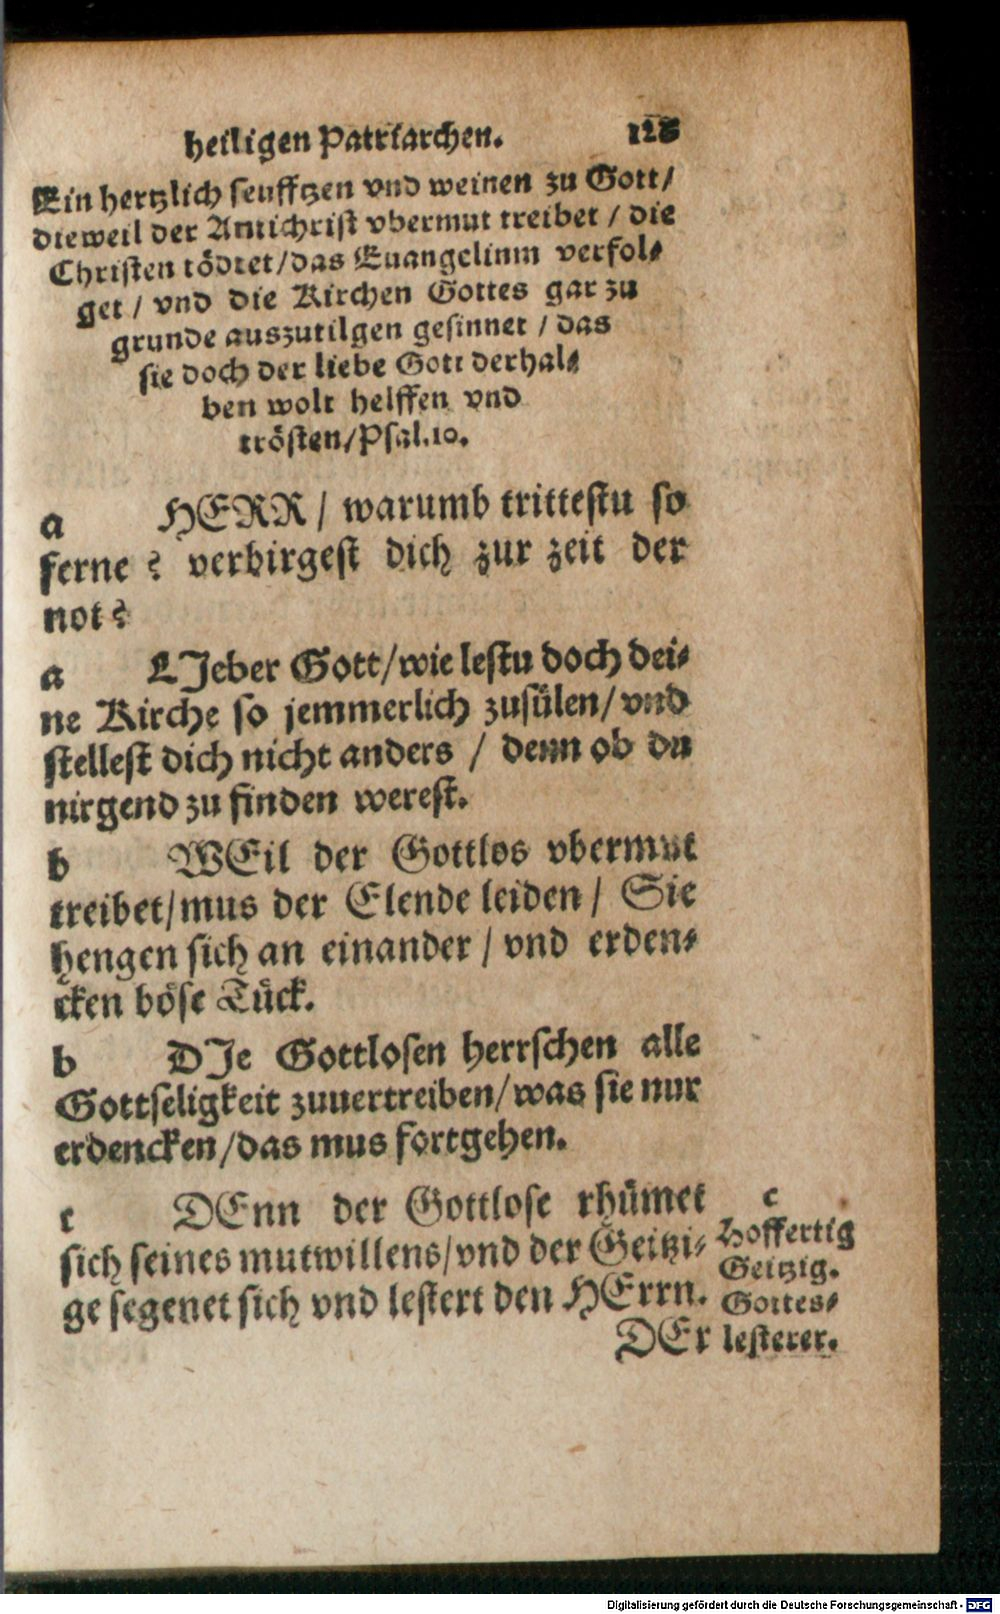 heiligen Patriarchen. 128
Ein hertzlich seufftzen vnd weinen zu Gott/
dieweil der Antichrist vbermut treibet / die
Christen tödtet/das Euangelium verfol⸗
get / vnd die Kirchen Gottes gar zu
grunde auszutilgen gesinnet / das
sie doch der liebe Gott derhal⸗
ben wolt helffen vnd
trösten/Psal.10.
a HERR / warumb trittestu so
ferne ? verbirgest dich zur zeit der
not?
a LJeber Gott/wie lestu doch dei⸗
ne Kirche so jemmerlich zusülen/vnd
stellest dich nicht anders / denn ob du
nirgend zu finden werest.
b WEil der Gottlos vbermut
treibet/mus der Elende leiden / Sie
hengen sich an einander / vnd erden⸗
cken böse Tück.
b DJe Gottlosen herrschen alle
Gottseligkeit zuuertreiben/was sie nur
erdencken/das mus fortgehen.
c DEnn der Gottlose rhümet
sich seines mutwillens/vnd der Geitzi⸗
ge segenet sich vnd lestert den HErrn.
DEr
c
Hoffertig
Geitzig.
Gottes⸗
lesterer.
Digitalisierung gefördert durch die Deutsche Forschungsgemeinschaft - DFG